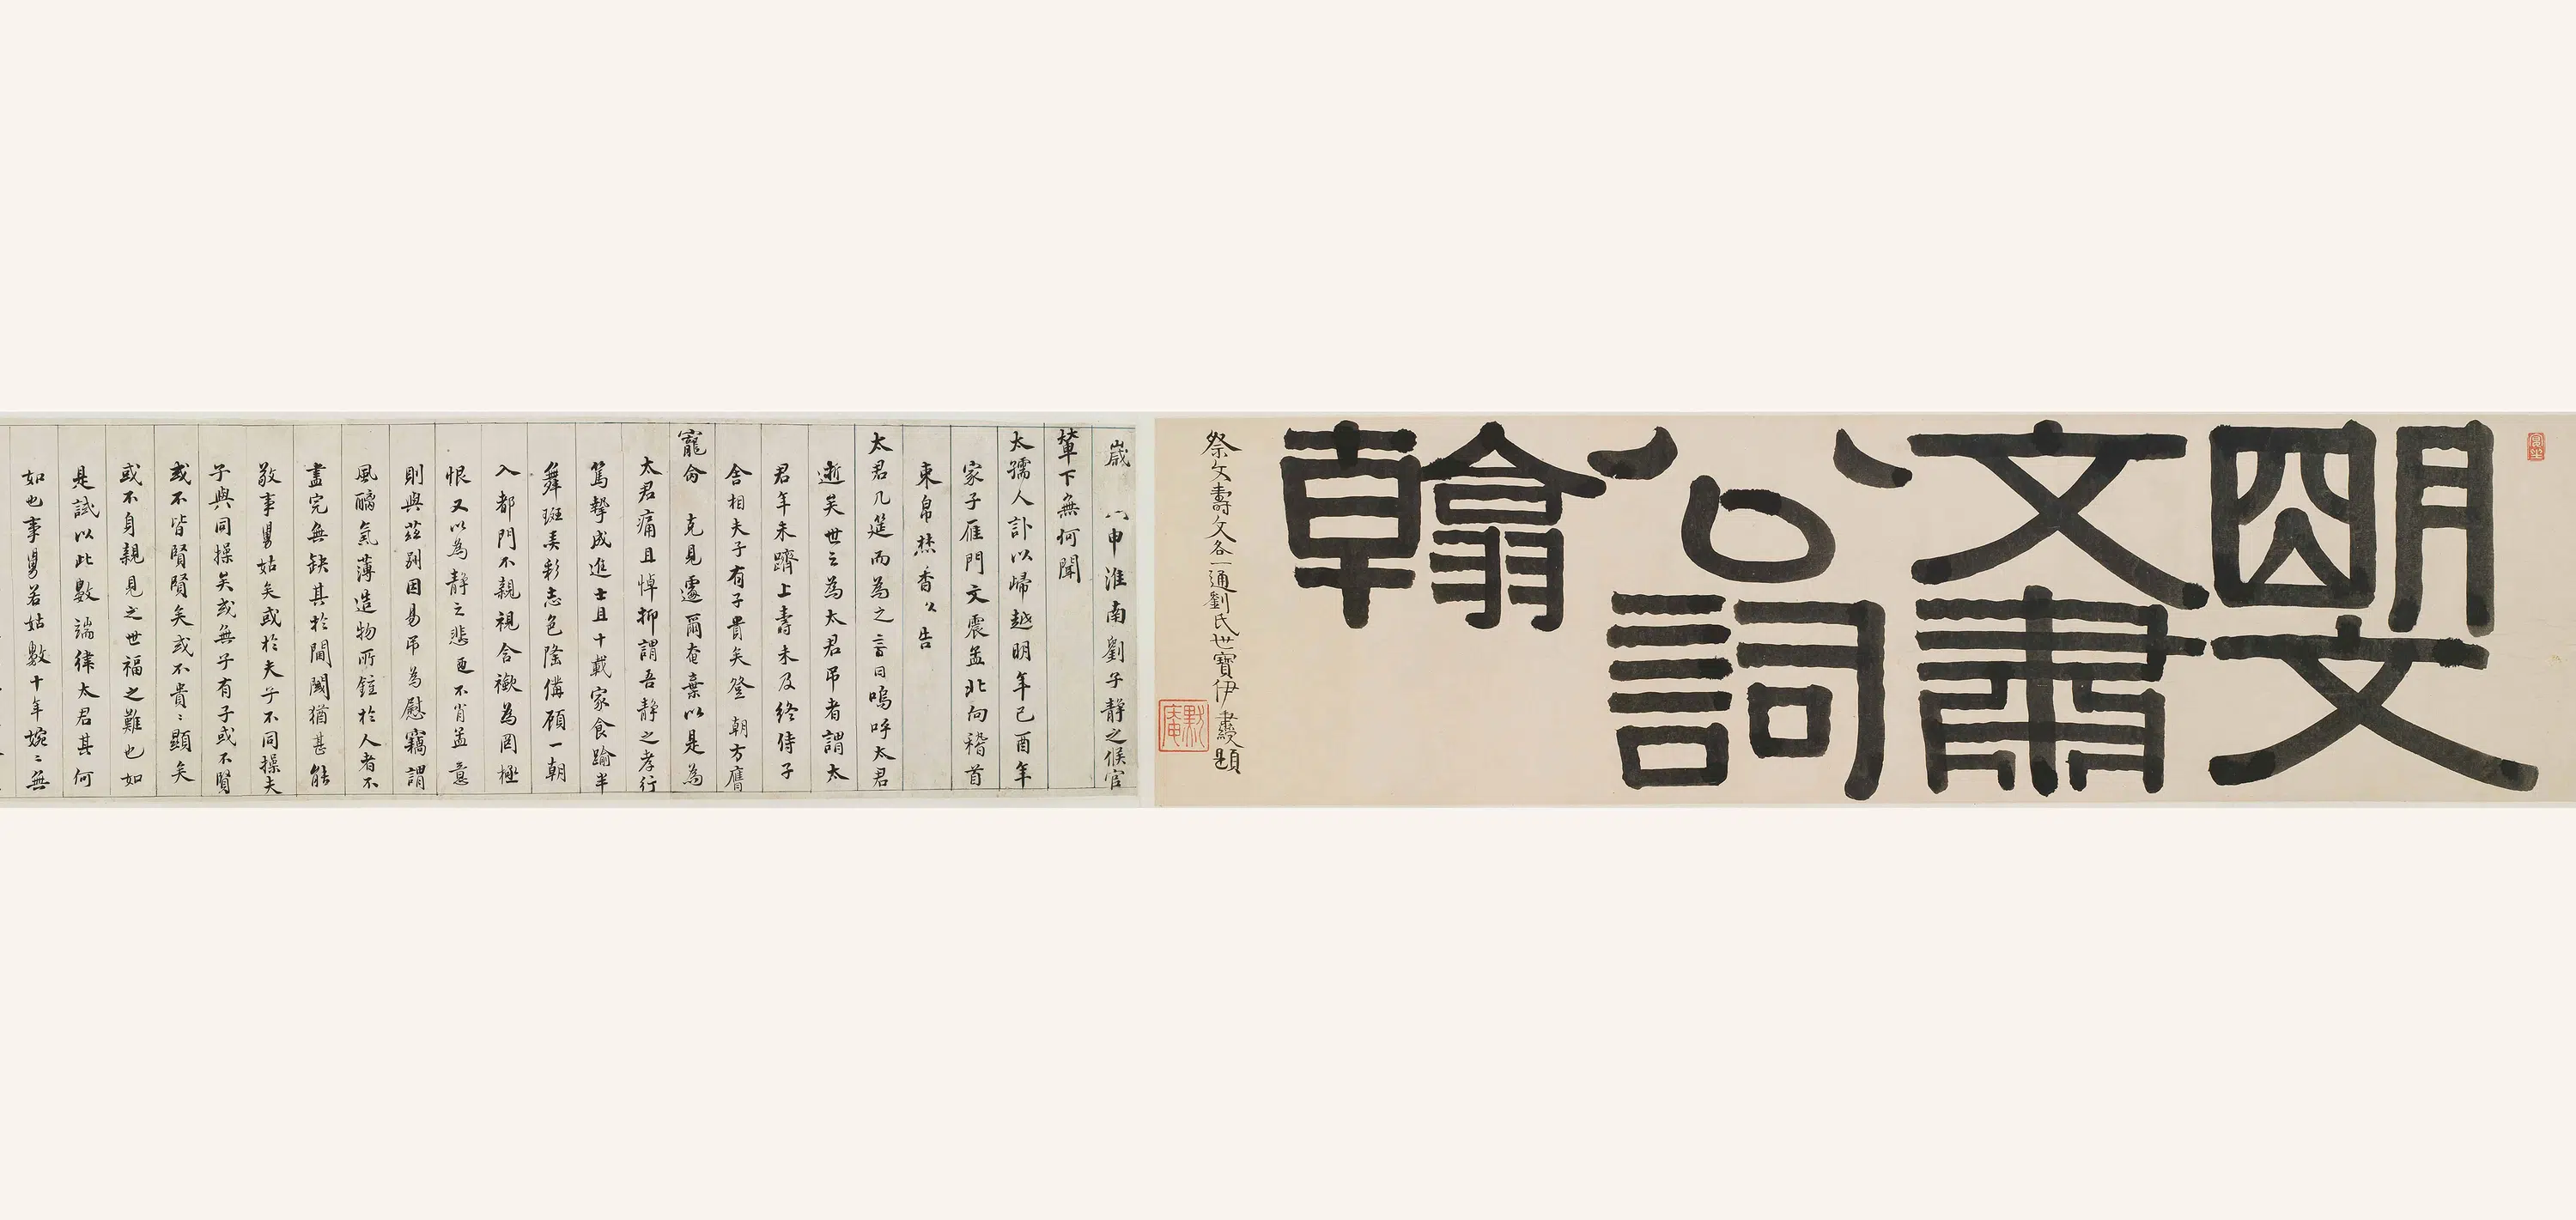 明文
文肅
公詞
翰
祭文壽文各一通劉氏世寶伊秉綬題
默庵
歲申淮南劉子靜之候官
輦下無何聞
太孺人訃以歸越明年己酉年
家子雁門文震孟北向稽首
束帛焚香以告
太君几筵而為之言曰嗚呼太君
逝矣世之為太君弔者謂太
君年未躋上壽未及終侍子
舍相夫子有子貴矣登朝方膺
寵侖克見遽爾奄棄以是為
太君痛且悼抑謂吾靜之孝行
篤摯成進士且十載家食踰半
舞斑美彩志色隆備顧一朝
入都門不親視含襚為罔極
恨又以為靜之悲迺不肖孟意
則與茲別因易弔為慰竊謂
風醨氣薄造物所鍾於人者不
盡完無缺其於閫閾猶甚能
敬事舅姑矣或於夫子不同操夫
子與同操矣或無子有子或不賢
或不皆賢賢矣或不貴貴顯矣
或不身親見之世福之難也如
是試以此數端律太君其何
如也事舅若姑數十年婉婉無